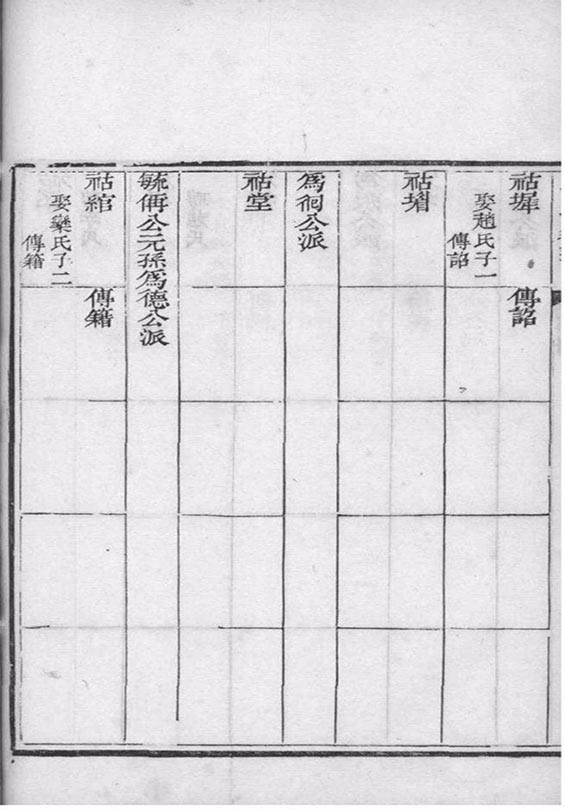 祜墀
傳詔
娶趙氏子一
傳詔
祜堦
為祠公派
祜堂
毓俌公元孫為德公派
祜綰
傳籍
娶欒氏子二
傳籍